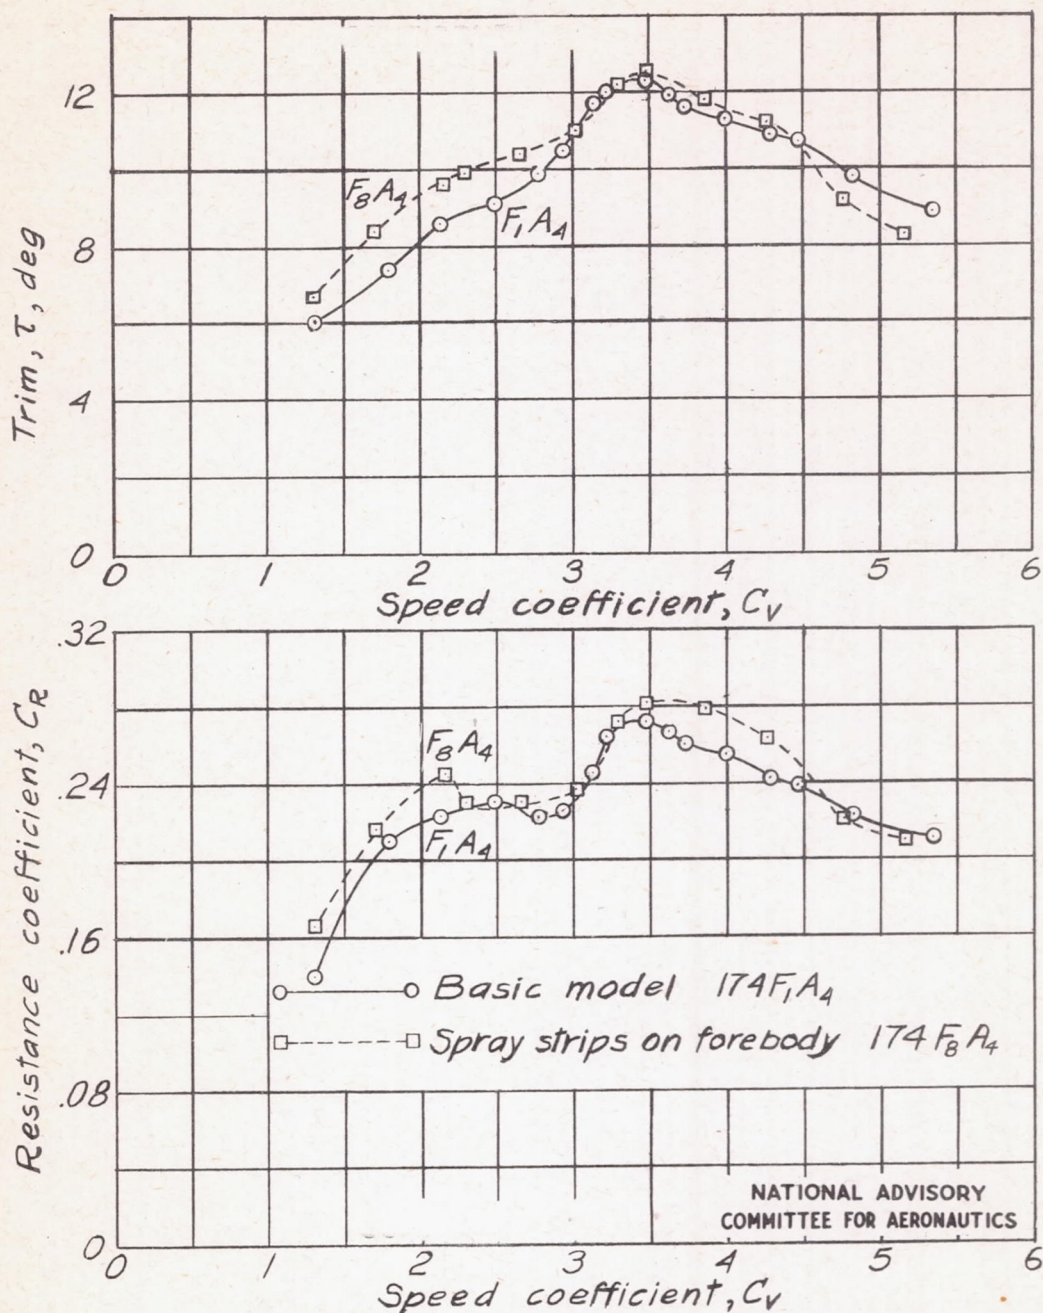 12
8
4
0
Trim, τ, deg
F₈A₄
F₁A₄
0 1 2 3 4 5 6
Speed coefficient, Cᵥ
.32
.24
.16
.08
0
Resistance coefficient, C_R
F₈A₄
F₁A₄
Basic model 174F₁A₄
Spray strips on forebody 174F₈A₄
NATIONAL ADVISORY
COMMITTEE FOR AERONAUTICS
0 1 2 3 4 5 6
Speed coefficient, Cᵥ